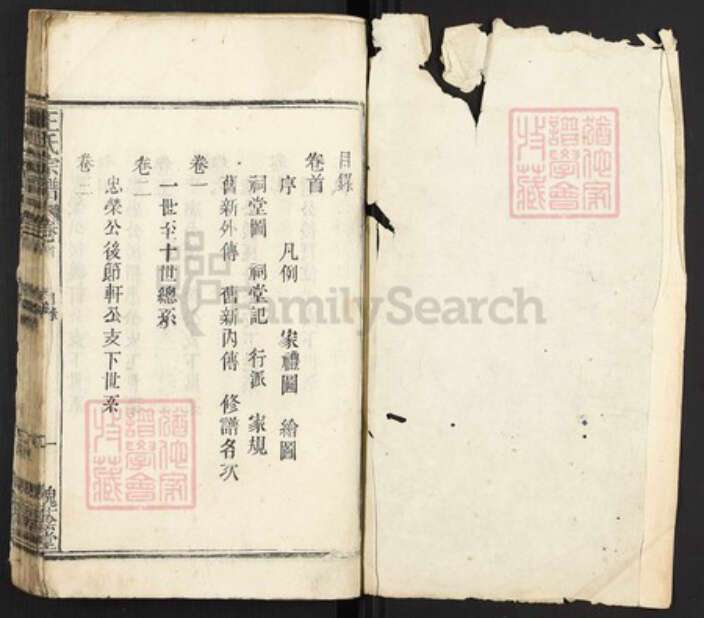 目錄
卷首
序 凡例 家禮圖 繪圖
祠堂圖 祠堂記 行派 家規
舊新外傳 舊新內傳 修譜名次
卷一
一世至十世總系
卷二
忠榮公後節軒公支下世系
卷三
王氏宗譜 卷首 目錄 一 槐蔭堂
猶他家譜學會收藏
猶他家譜學會收藏
FamilySearch